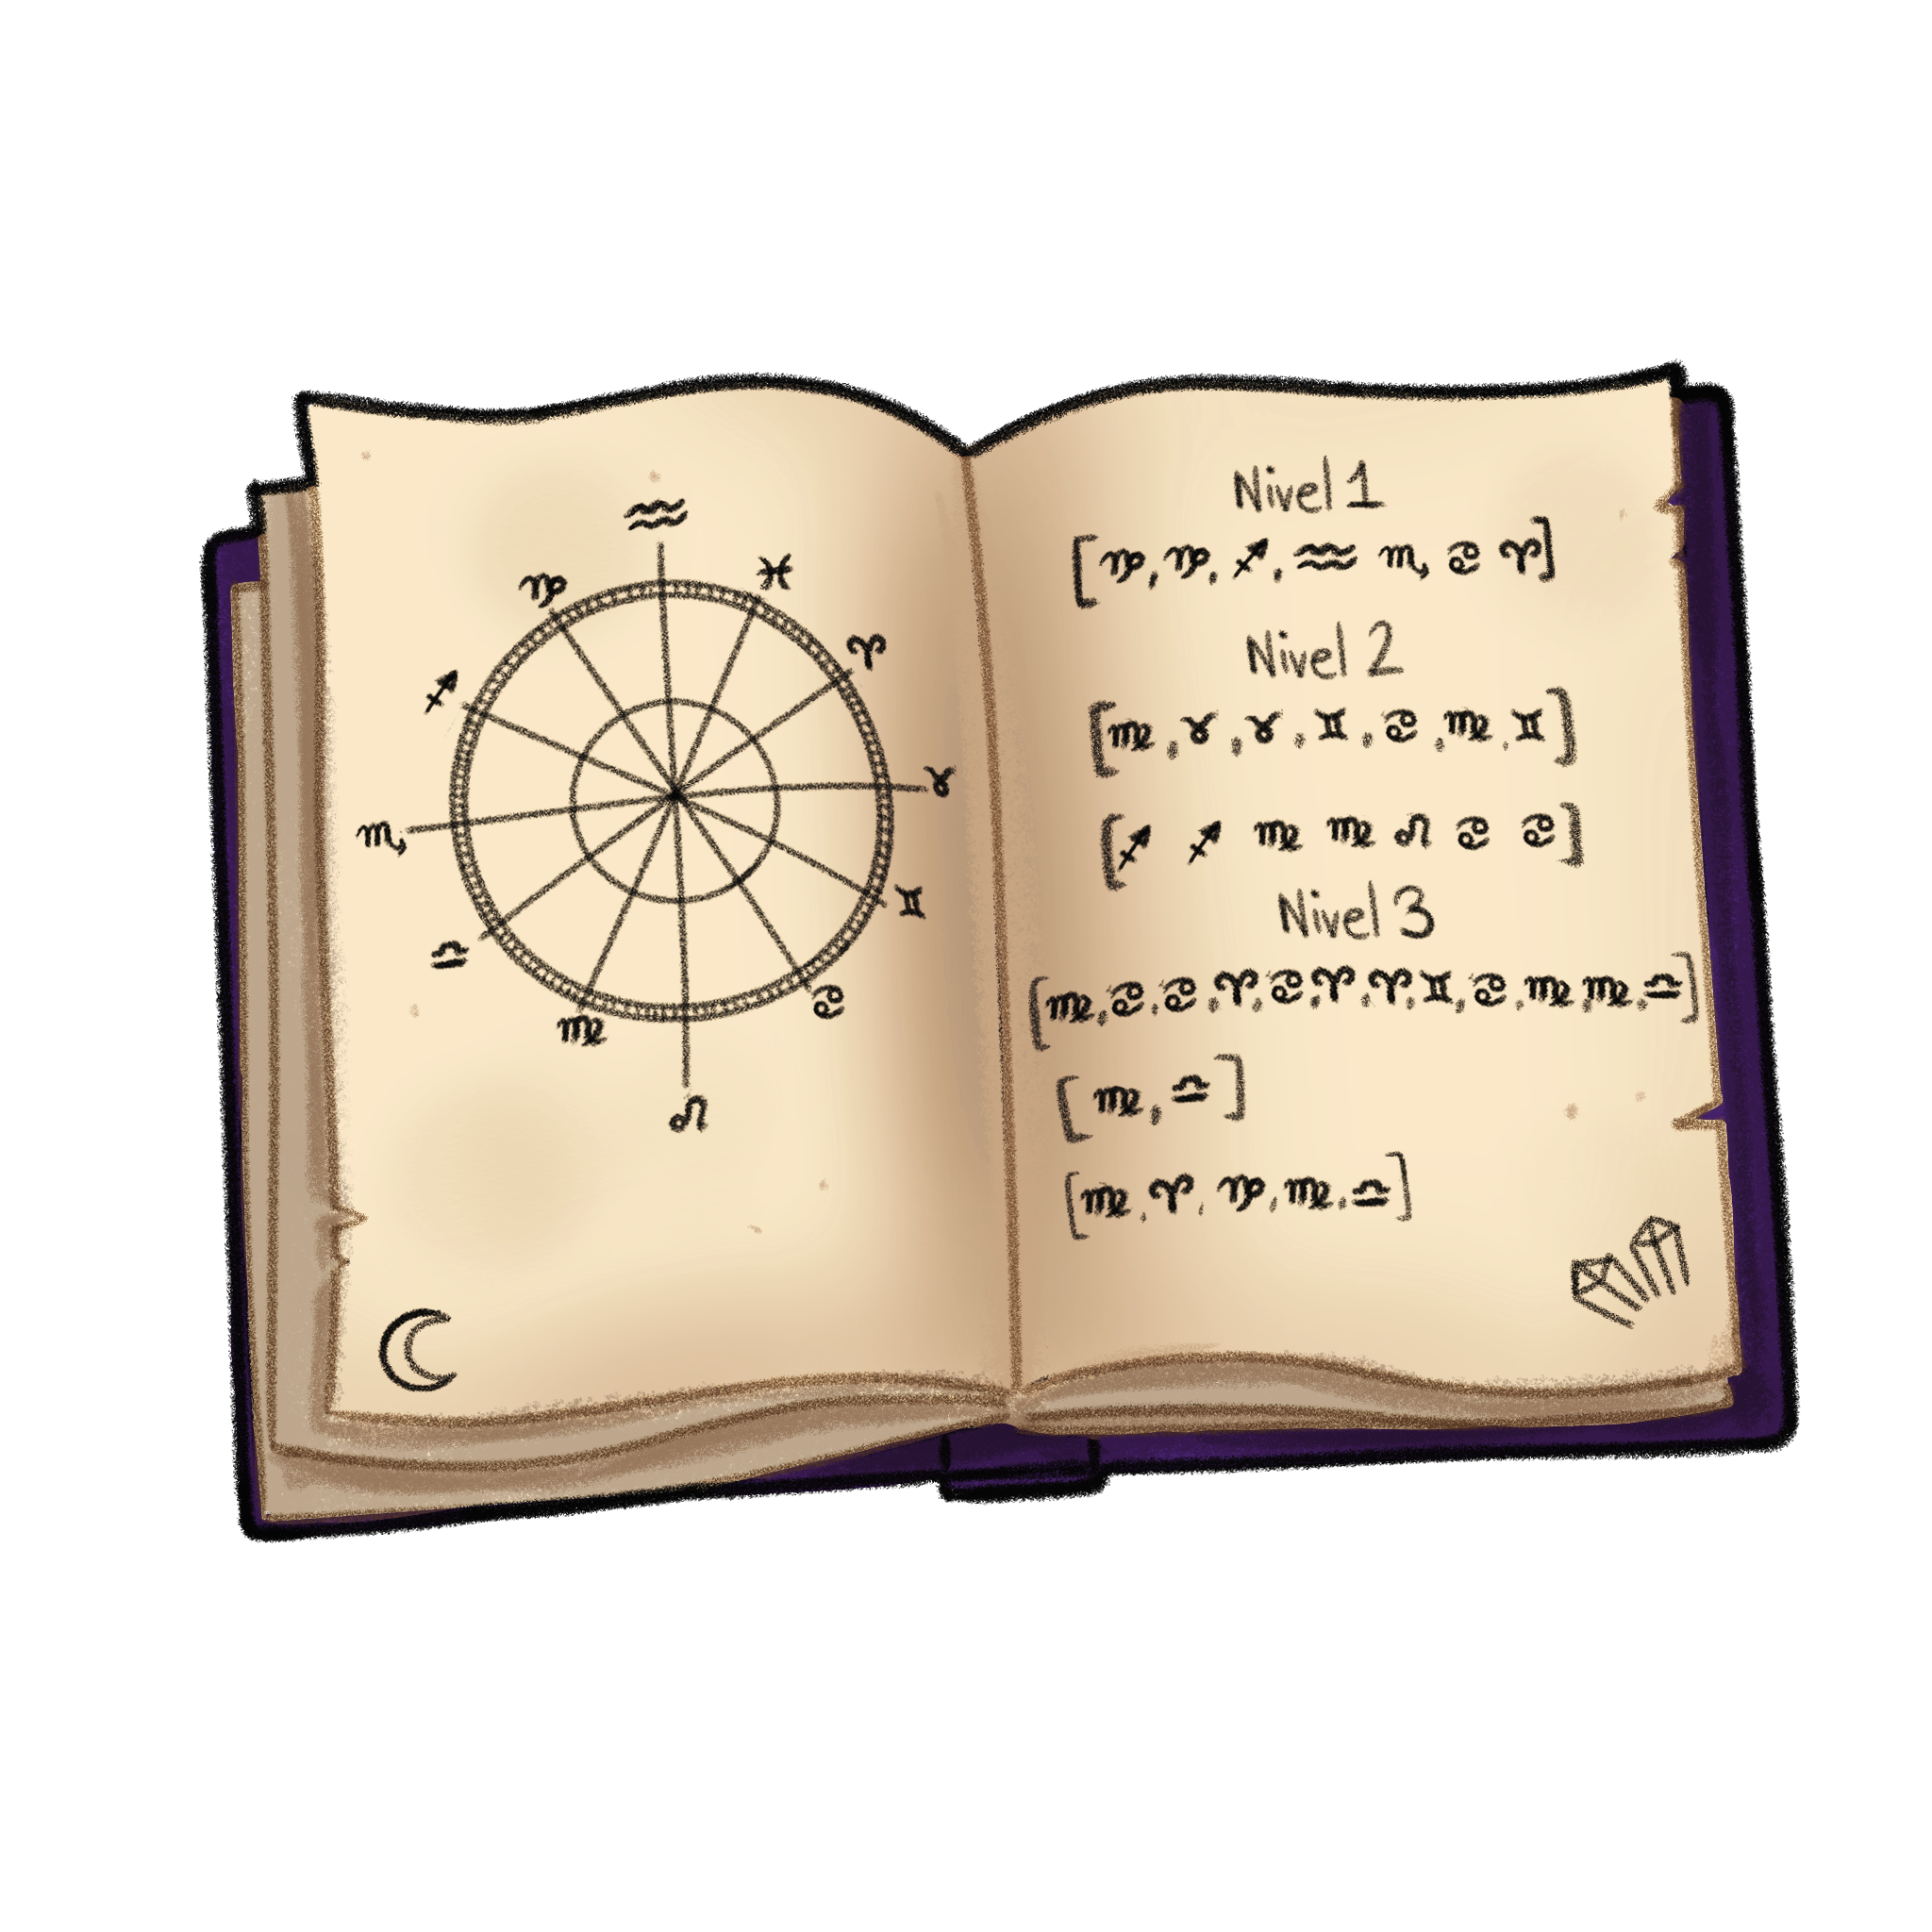 ♒
♑ ♓
♐ ♈
♏ ♉
♎ ♊
♍ ♋
♌
Nivel 1
[♑, ♑, ♐, ♒ ♏ ♋ ♈]
Nivel 2
[♍, ♉, ♉, ♊, ♋, ♍, ♊]
[♐ ♐ ♍ ♍ ♌ ♋ ♋]
Nivel 3
[♍, ♋, ♋, ♈, ♋, ♈, ♈, ♊, ♋, ♍, ♍, ♎]
[♍, ♎]
[♍, ♈, ♑, ♍, ♎]